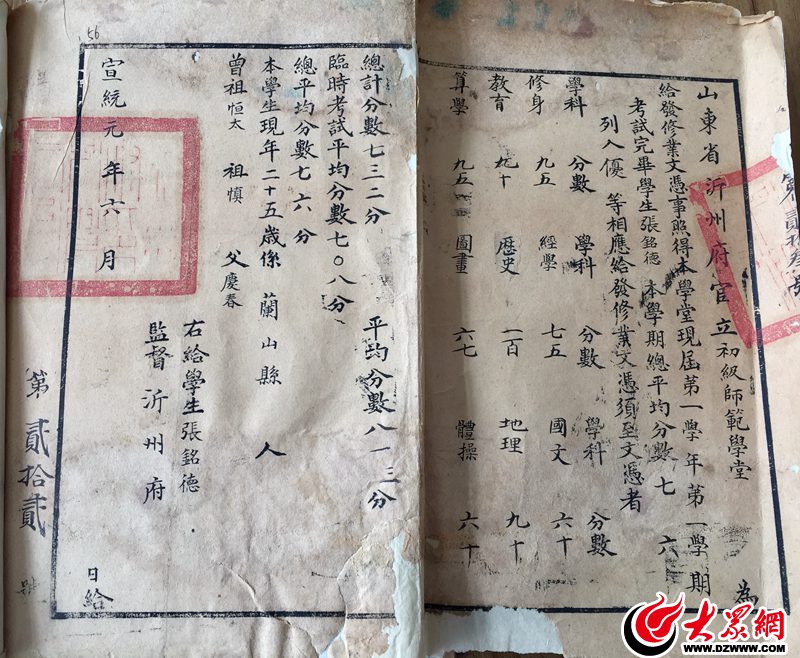 山東省沂州府官立初級師範學堂 為
給發修業文憑事照得本學堂現屆第一學年第一學期
考試完畢學生張銘德 本學期總平均分數七 六
列入優 等相應給發修業文憑須至文憑者
學科 分數 學科 分數 學科 分數
修身 九五 經學 七五 國文 六十
教育 九十 歷史 一百 地理 九十
算學 九五 圖畫 六七 體操 六十
總計分數七三二分 平均分數八一三分
臨時考試平均分數七〇八分
總平均分數七六分
本學生現年二十五歲係 蘭山縣 人
曾祖恒太 祖慎 父慶春
右給學生張銘德
監督沂州府
宣統元年六月 日給
第貳拾貳
56
大眾網
WWW.DZWWW.COM